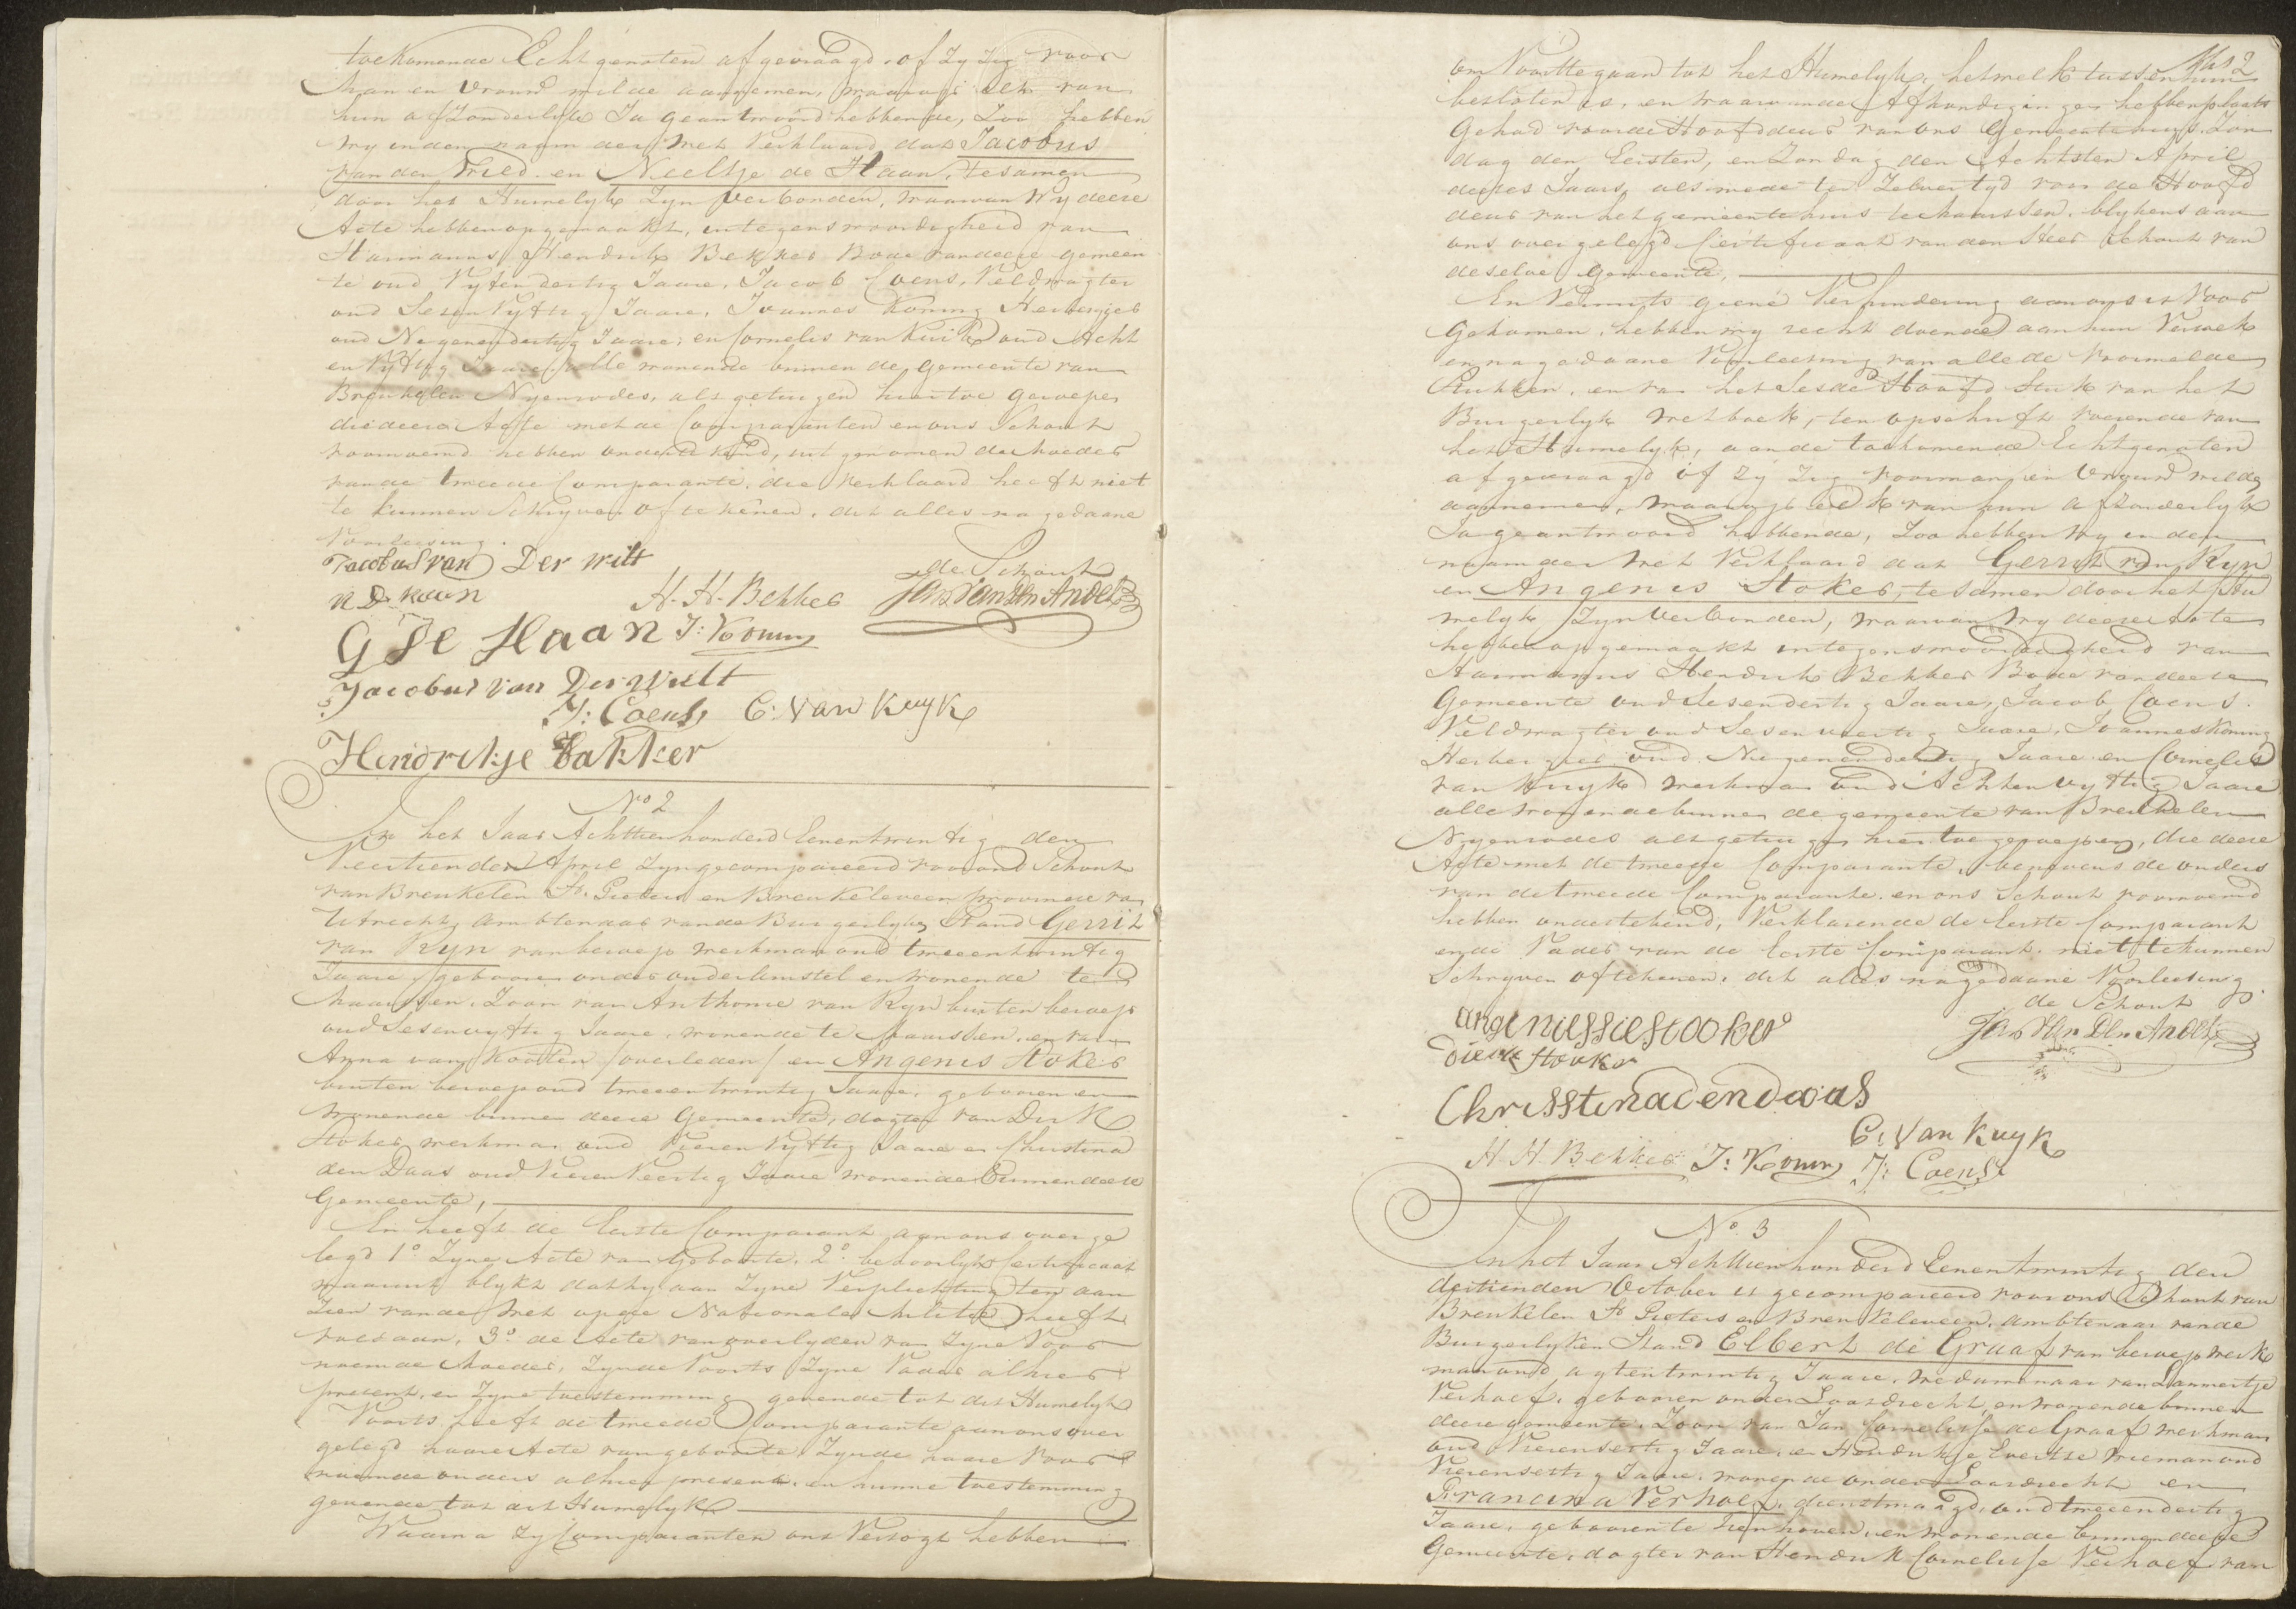 toekomende Echtgenoten afgevraagd of Zy Zig voor
Man en Vrouw wilde aannemen, waarop elk van
hun afZonderlyk Ja geantwoord hebbende, Zoo hebben
wy inden naam der Wet Verklaard dat Jacobus
van der Wild en Neeltje de Haan, tesamen
door het Huwelyk Zyn verbonden, waarvan Wy deese
Acte hebben opgemaakt, in tegenswoordigheid van
Harmanus Hendrik Bekker Bode van deese gemeen
te oud Vyfendertig Jaare, Jacob Coens, Veldwagter
oud Sesen Vyftig Jaare, Joannes Koning Herbergier
oud Negenendertig Jaare, en Cornelis van Kuik oud Acht
en Vyftig Jaare, alle wonende binnen de gemeente van
Breukelen Nyenrodes, als getuigen hiertoe geroepen
die deese Acte met de Comparanten en ons Schout
voornoemd hebben ondertekend, uitgenomen de moeder
van de tweede Comparante, die verklaard heeft niet
te kunnen Schryven of tekenen, dit alles na gedaane
Voorleesing.
Jacobus van Der wilt
N D Haan
de Schout
H. H. Bekker Jan Van Den Andel
G De Haan J: Koning
Jacobus van Der wilt
J: Coens C: Van Kuyk
Hendrikje Bakker
No 2
In het Jaar Achttien honderd Eenentwintig den
Veertienden April Zyn gecompareerd voor ons Schout
van Breukelen St. Pieters en Breukeleveen provincie van
Utrecht, Ambtenaar van de Burgerlyke Stand Gerrit
van Ryn van beroep werkman oud tweeentwintig
Jaare, geboren onder ouder Amstel en wonende te
Maarssen, Zoon van Anthonie van Ryn buiten beroep
oud Sesenvyftig Jaare, wonende te Maarssen, en van
Anna van Kooten (overleden) en Angenis Stoker
buiten beroep oud tweeentwintig Jaare, geboren en
wonende binnen deese Gemeente, dogter van Dirk
Stoker, werkman oud Vieren Vyftig Jaare en Christina
den Daas oud Vieren Veertig Jaare wonende binnen deese
Gemeente,
En heeft de Eerste Comparant aan ons overge
legd 1o. Zyne Acte van Geboorte, 2o. behoorlyk Certificaat
waaruit blykt dat hy aan Zyne Verplichting ten aan
Zien van de Wet op de Nationale Militie heeft
voldaan, 3o. de Acte van overlyden van Zyne Voor
noemde Moeder, Zynde Voorts Zyne Vader alhier
present, en Zyne toestemming gevende tot dit Huwelyk
Voorts heeft de tweede Comparante aan ons over
gelegd haare Acte van geboorte, Zynde haare Voor
noemde ouders alhier present, en hunne toestemming
gevende tot dit Huwelyk
Waarna Zy Comparanten ons Versogt hebben
2
om Voort te gaan tot het Huwelyk, hetwelk tussen hun
besloten is, en waarvan de Afkondigingen hebben plaats
Gehad voor de Hoofddeur van ons Gemeentehuys Zon
dag den Eersten, en Zondag den Achtsten April
deeses Jaars, als mede ter Zelver tyd voor de Hoofd
deur van het gemeente huis te Maarssen, blykens aan
ons overgelegd Certificaat van den Heer Schout van
deselve Gemeente,
En Vermits geene Verhindering aan ons is Voor
Gekomen, hebben wy recht doende aan hun Versoek
en na gedaane Voorleesing van alle de Voormelde
Stukken, en van het Sesde Hoofd Stuk van het
Burgerlyk wetboek, ten opschrift voerende van
het Huwelyk, aan de toekomende Echtgenoten
afgevraagd of Zy Zig voor man en Vrouw wilde
aannemen, waarop elk van hun afZonderlyk
Ja geantwoord hebbende, Zoo hebben Wy in den
naam der Wet Verklaard dat Gerrit van Ryn
en Angenis Stoker, te samen door het Hu
welyk Zyn Verbonden, waarvan Wy deese Acte
hebben opgemaakt in tegenswoordigheid van
Harmanus Hendrik Bekker Bode van deese
Gemeente oud Sesendertig Jaare, Jacob Coens
Veldwagter oud Sesenveertig Jaare, Joannes Koning
Herbergier oud Negenendertig Jaare en Cornelis
van Kuyk werkman oud Achtenvyftig Jaare
alle wonende binnen de gemeente van Breukelen
Nyenrodes als getuigen hiertoe geroepen, die deese
Acte met de tweede Comparante, benevens de ouders
van de tweede Comparante en ons Schout voornoemd
hebben ondertekend, Verklarende de Eerste Comparant
en de Vader van de Eerste Comparant niet te kunnen
Schryven of tekenen, dit alles na gedaane Voorleesing
de Schout
Jan Van Den Andel
angeniessiestooker
Dierk Stooker
Chrisstinadendaas
C: Van Kuyk
H H Bekker J: Koning J: Coens
No 3
In het Jaar Achttien honderd Eenentwintig den
dertienden October is gecompareerd voor ons Schout van
Breukelen St Pieters en Breukeleveen, ambtenaar van de
Burgerlyken Stand Elbert de Graaf van beroep werk
man oud agtentwintig Jaare, weduwenaar van Lammertje
Verhoef, geboren onder Loosdrecht en wonende binnen
deese gemeente, Zoon van Jan Cornelisse de Graaf werkman
oud Vierensestig Jaare, en Hendrikje Evertse Wieman oud
Vierensestig Jaare, wonende onder Loosdrecht en
Francina Verhoef, dienstmaagd, oud tweeendertig
Jaare, geboren te Tienhoven, en wonende binnen deese
Gemeente, dogter van Hendrik Cornelisse Verhoef van